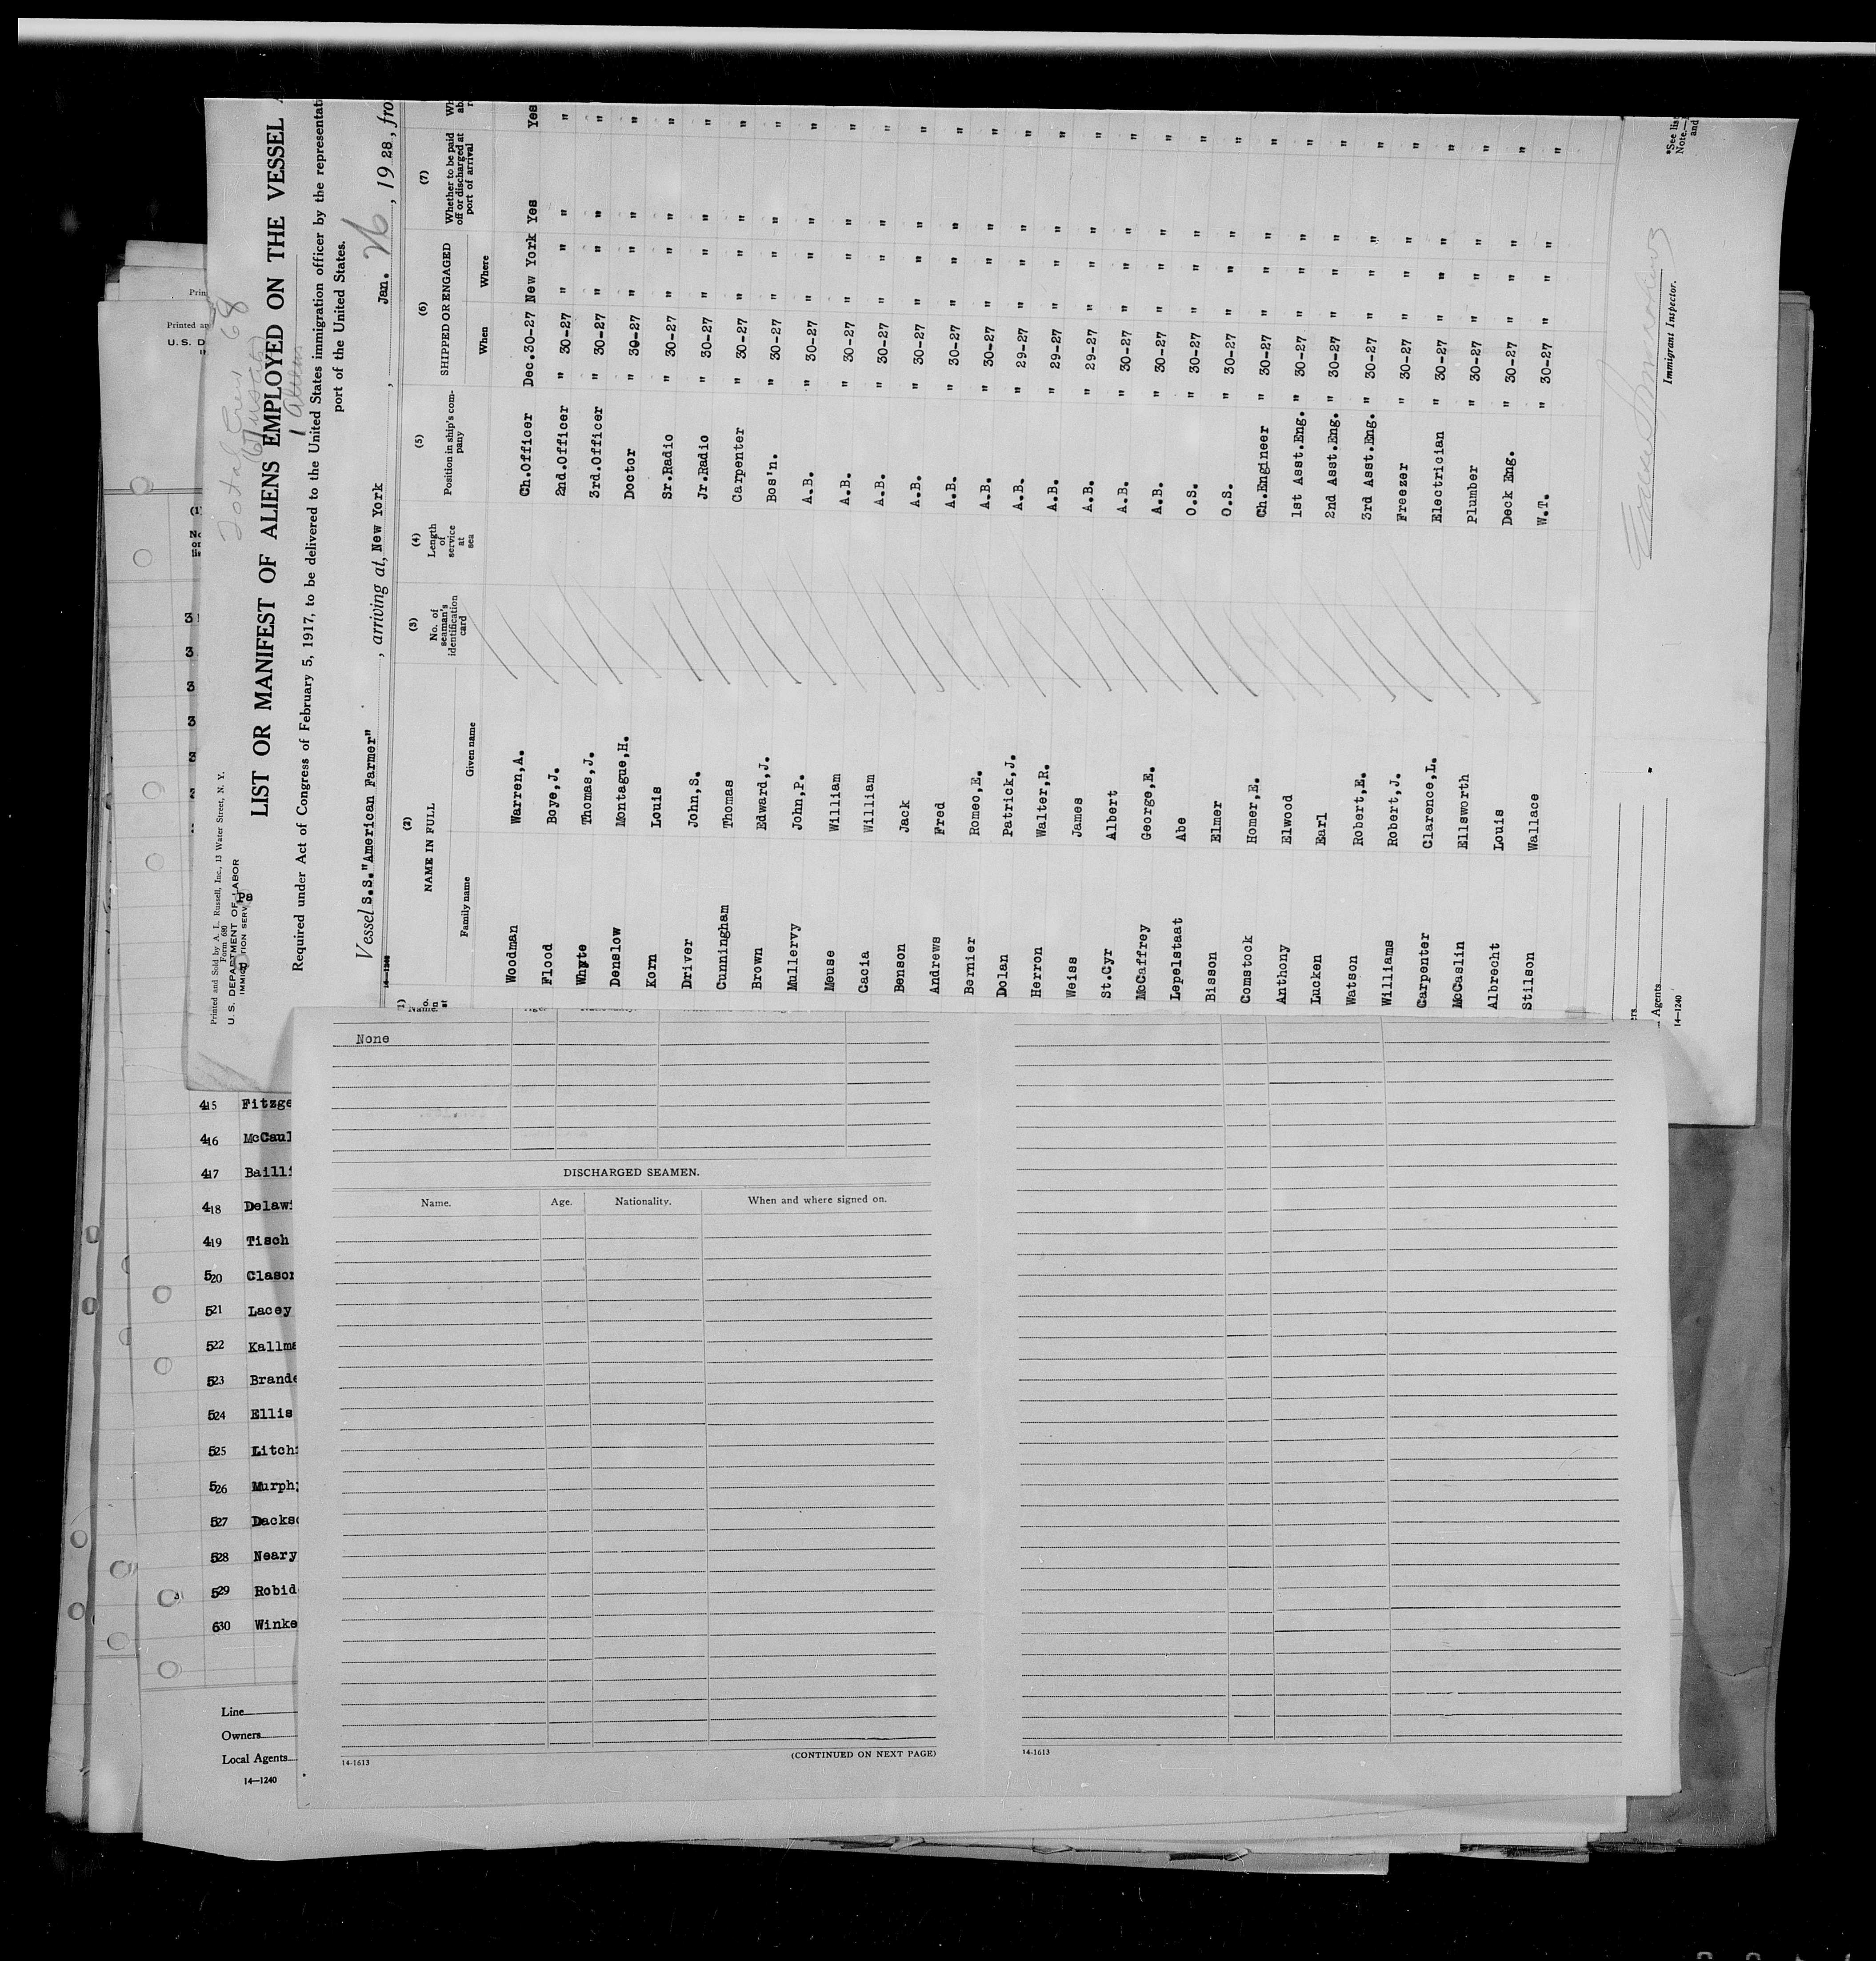 Total Crew 68
Printed and Sold by A. L. Russell, Inc., 13 Water Street, N. Y.
Form 680
U. S. DEPARTMENT OF LABOR
IMMIGRATION SERV
LIST OR MANIFEST OF ALIENS EMPLOYED ON THE VESSEL
Required under Act of Congress of February 5, 1917, to be delivered to the United States immigration officer by the representati
port of the United States.
Vessel S.S."American Farmer" , arriving at, New York , Jan. 26 , 1928, fro
14-1240
(2) (3) (4) (5) (6) (7)
NAME IN FULL No. of seaman's identification card Length of service at sea Position in ship's company SHIPPED OR ENGAGED Whether to be paid off or discharged at port of arrival
Family name Given name When Where
Woodman Warren,A. Ch.Officer Dec.30-27 New York Yes Yes
Flood Boye,J. 2nd.Officer " 30-27 " " " "
Whyte Thomas,J. 3rd.Officer " 30-27 " " " "
Denslow Montague,H. Doctor " 30-27 " " " "
Korn Louis Sr.Radio " 30-27 " " " "
Driver John,S. Jr.Radio " 30-27 " " " "
Cunningham Thomas Carpenter " 30-27 " " " "
Brown Edward,J. Bos'n. " 30-27 " " " "
Mullervy John,P. A.B. " 30-27 " " " "
Meuse William A.B. " 30-27 " " " "
Cacia William A.B. " 30-27 " " " "
Benson Jack A.B. " 30-27 " " " "
Andrews Fred A.B. " 30-27 " " " "
Bernier Romeo,E. A.B. " 30-27 " " " "
Dolan Patrick,J. A.B. " 29-27 " " " "
Herron Walter,R. A.B. " 29-27 " " " "
Weiss James A.B. " 29-27 " " " "
St.Cyr Albert A.B. " 30-27 " " " "
McCaffrey George,E. A.B. " 30-27 " " " "
Lepelstaat Abe O.S. " 30-27 " " " "
Bisson Elmer O.S. " 30-27 " " " "
Comstock Homer,E. Ch.Engineer " 30-27 " " " "
Anthony Elwood 1st Asst.Eng. " 30-27 " " " "
Lucken Earl 2nd Asst.Eng. " 30-27 " " " "
Watson Robert,E. 3rd Asst.Eng. " 30-27 " " " "
Williams Robert,J. Freezer " 30-27 " " " "
Carpenter Clarence,L. Electrician " 30-27 " " " "
McCaslin Ellsworth Plumber " 30-27 " " " "
Albrecht Louis Deck Eng. " 30-27 " " " "
Stilson Wallace W.T. " 30-27 " " " "
Immigrant Inspector.
*See lis
Note.
and
Agents
14-1240
None
DISCHARGED SEAMEN.
Name. Age. Nationality. When and where signed on.
14-1613 (CONTINUED ON NEXT PAGE)
14-1613
415 Fitzge
416 McCaul
417 Bailli
418 Delawi
419 Tisch
520 Clason
521 Lacey
522 Kallma
523 Brande
524 Ellis
525 Litch
526 Murph
527 Dackso
528 Neary
529 Robid
630 Winke
Line
Owners
Local Agents
14—1240